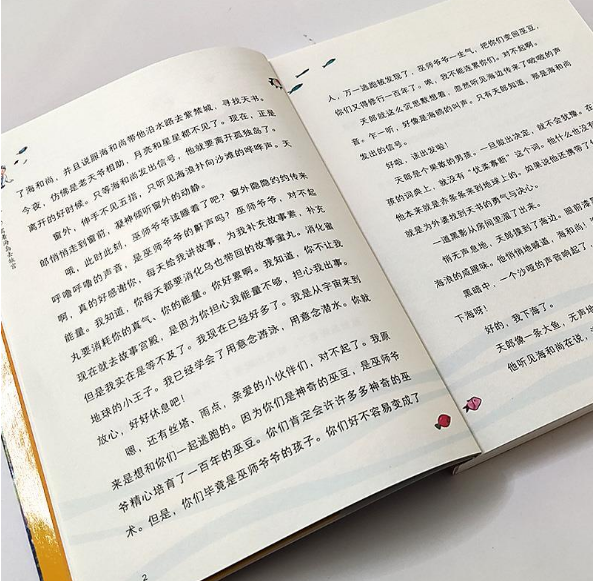 了海和尚，并且说跟海和尚带他沿水路去紫禁城，寻找天书。
今夜，仿佛是老天爷相助，月亮和星星都不见了。现在，正是
离开的好时候。只等海和尚发出信号，他就要离开孤独岛了。
窗外，伸手不见五指，只听见海浪扑向沙滩的哗哗声。天
郎悄悄走到窗前，凝神倾听窗外的动静。
哦，此时此刻，巫师爷爷该睡着了吧？窗外隐隐约约传来
呼噜呼噜的声音，是巫师爷爷的鼾声吗？巫师爷爷，对不起
啊，真的好感谢你，每天给我讲故事，为我补充故事素，补充
能量。我知道，你每天都要消化鸟也带回的故事蜜丸。消化蜜
丸要消耗你的真气、你的能量。你好累啊。我知道，你不让我
现在就去故事宫殿，是因为你担心我能量不够，担心我出事。
但是我实在是等不及了。我现在已经好多了。我是从宇宙来到
地球的小王子。我已经学会了用意念游泳，用意念潜水。你就
放心，好好休息吧！
嗯，还有丝塔、雨点，亲爱的小伙伴们，对不起了。我原
来是想和你们一起逃跑的。因为你们是神奇的巫豆，是巫师爷
爷精心培育了一百年的巫豆。你们肯定会许许多多神奇的巫
术。但是，你们毕竟是巫师爷爷的孩子。你们好不容易变成了
2
人，万一逃跑被发现了，巫师爷爷一生气，把你们变回巫豆，
你们又得修行一百年了。唉，我不能连累你们。对不起啊。
天郎就这么默默想着，忽然听见海边传来了呦呦的声
音。乍一听，好像是海鸥的叫声。只有天郎知道，那是海和尚
发出的信号。
好啦，该出发啦！
天郎是个果敢的男孩，一旦做出决定，就不会犹豫。在
孩的词典上，就没有“优柔寡断”这个词。他什么也没有
他本来就是赤条条来到地球上的。如果说他还携带了什
就是为外婆找到天书的勇气与决心。
一道黑影从房间里溜了出来。
悄无声息地，天郎摸到了海边。眼前漆黑
海浪的低跟咪。他悄悄地喊道，海和尚！
黑暗中，一个沙哑的声音响起了，
下海呀！
好的，我下海了。
天郎像一条大鱼，无声地
他听见海和尚在说，